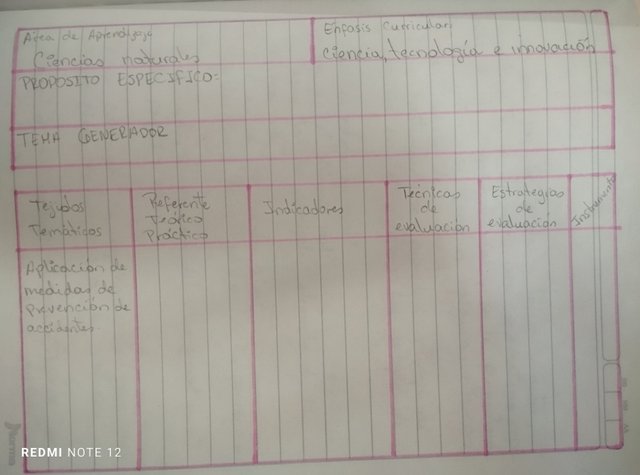 Area de Aprendizaje
Ciencias naturales
Enfasis Curricular:
Ciencia, tecnología e innovación
PROPOSITO ESPECIFICO:
TEMA GENERADOR
Tejidos
Temáticos
Referente
Teórico
Práctico
Indicadores
Técnicas
de
evaluación
Estrategias
de
evaluación
Instrumento
Aplicación de
medidas de
prevención de
accidentes.
Norma
REDMI NOTE 12